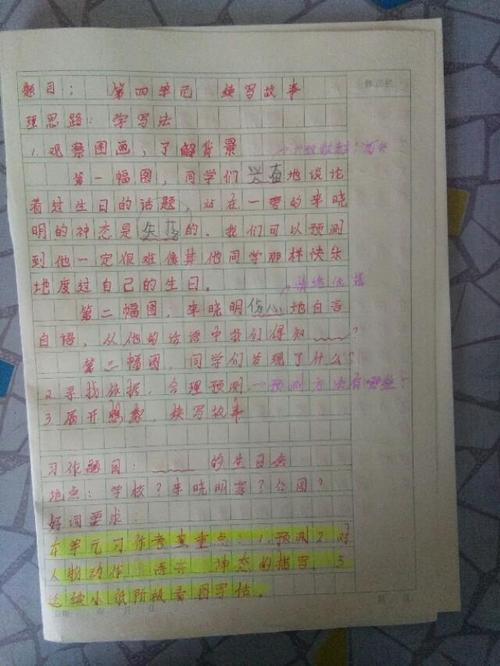 题目： 第四单元 续写故事
理思路：学写法
1.观察图画，了解背景
第一幅图，同学们兴奋地谈论
着过生日的话题，站在一旁的李晓
明的神态是失落的。我们可以预测
到他一定很难像其他同学那样快乐
地度过自己的生日。
第二幅图，李晓明伤心地自言
自语，从他的话语中我们得知 ？
第二幅图，同学们发现了什么？
2.寻找依据，合理预测 一预测方法有哪些？
3.展开想象，续写故事
习作题目： 的生日会
地点：学校？李晓明家？公园？
好词要求：
本单元习作考查重点：1.预测2.对
人物动作、语言、神态的描写，3.